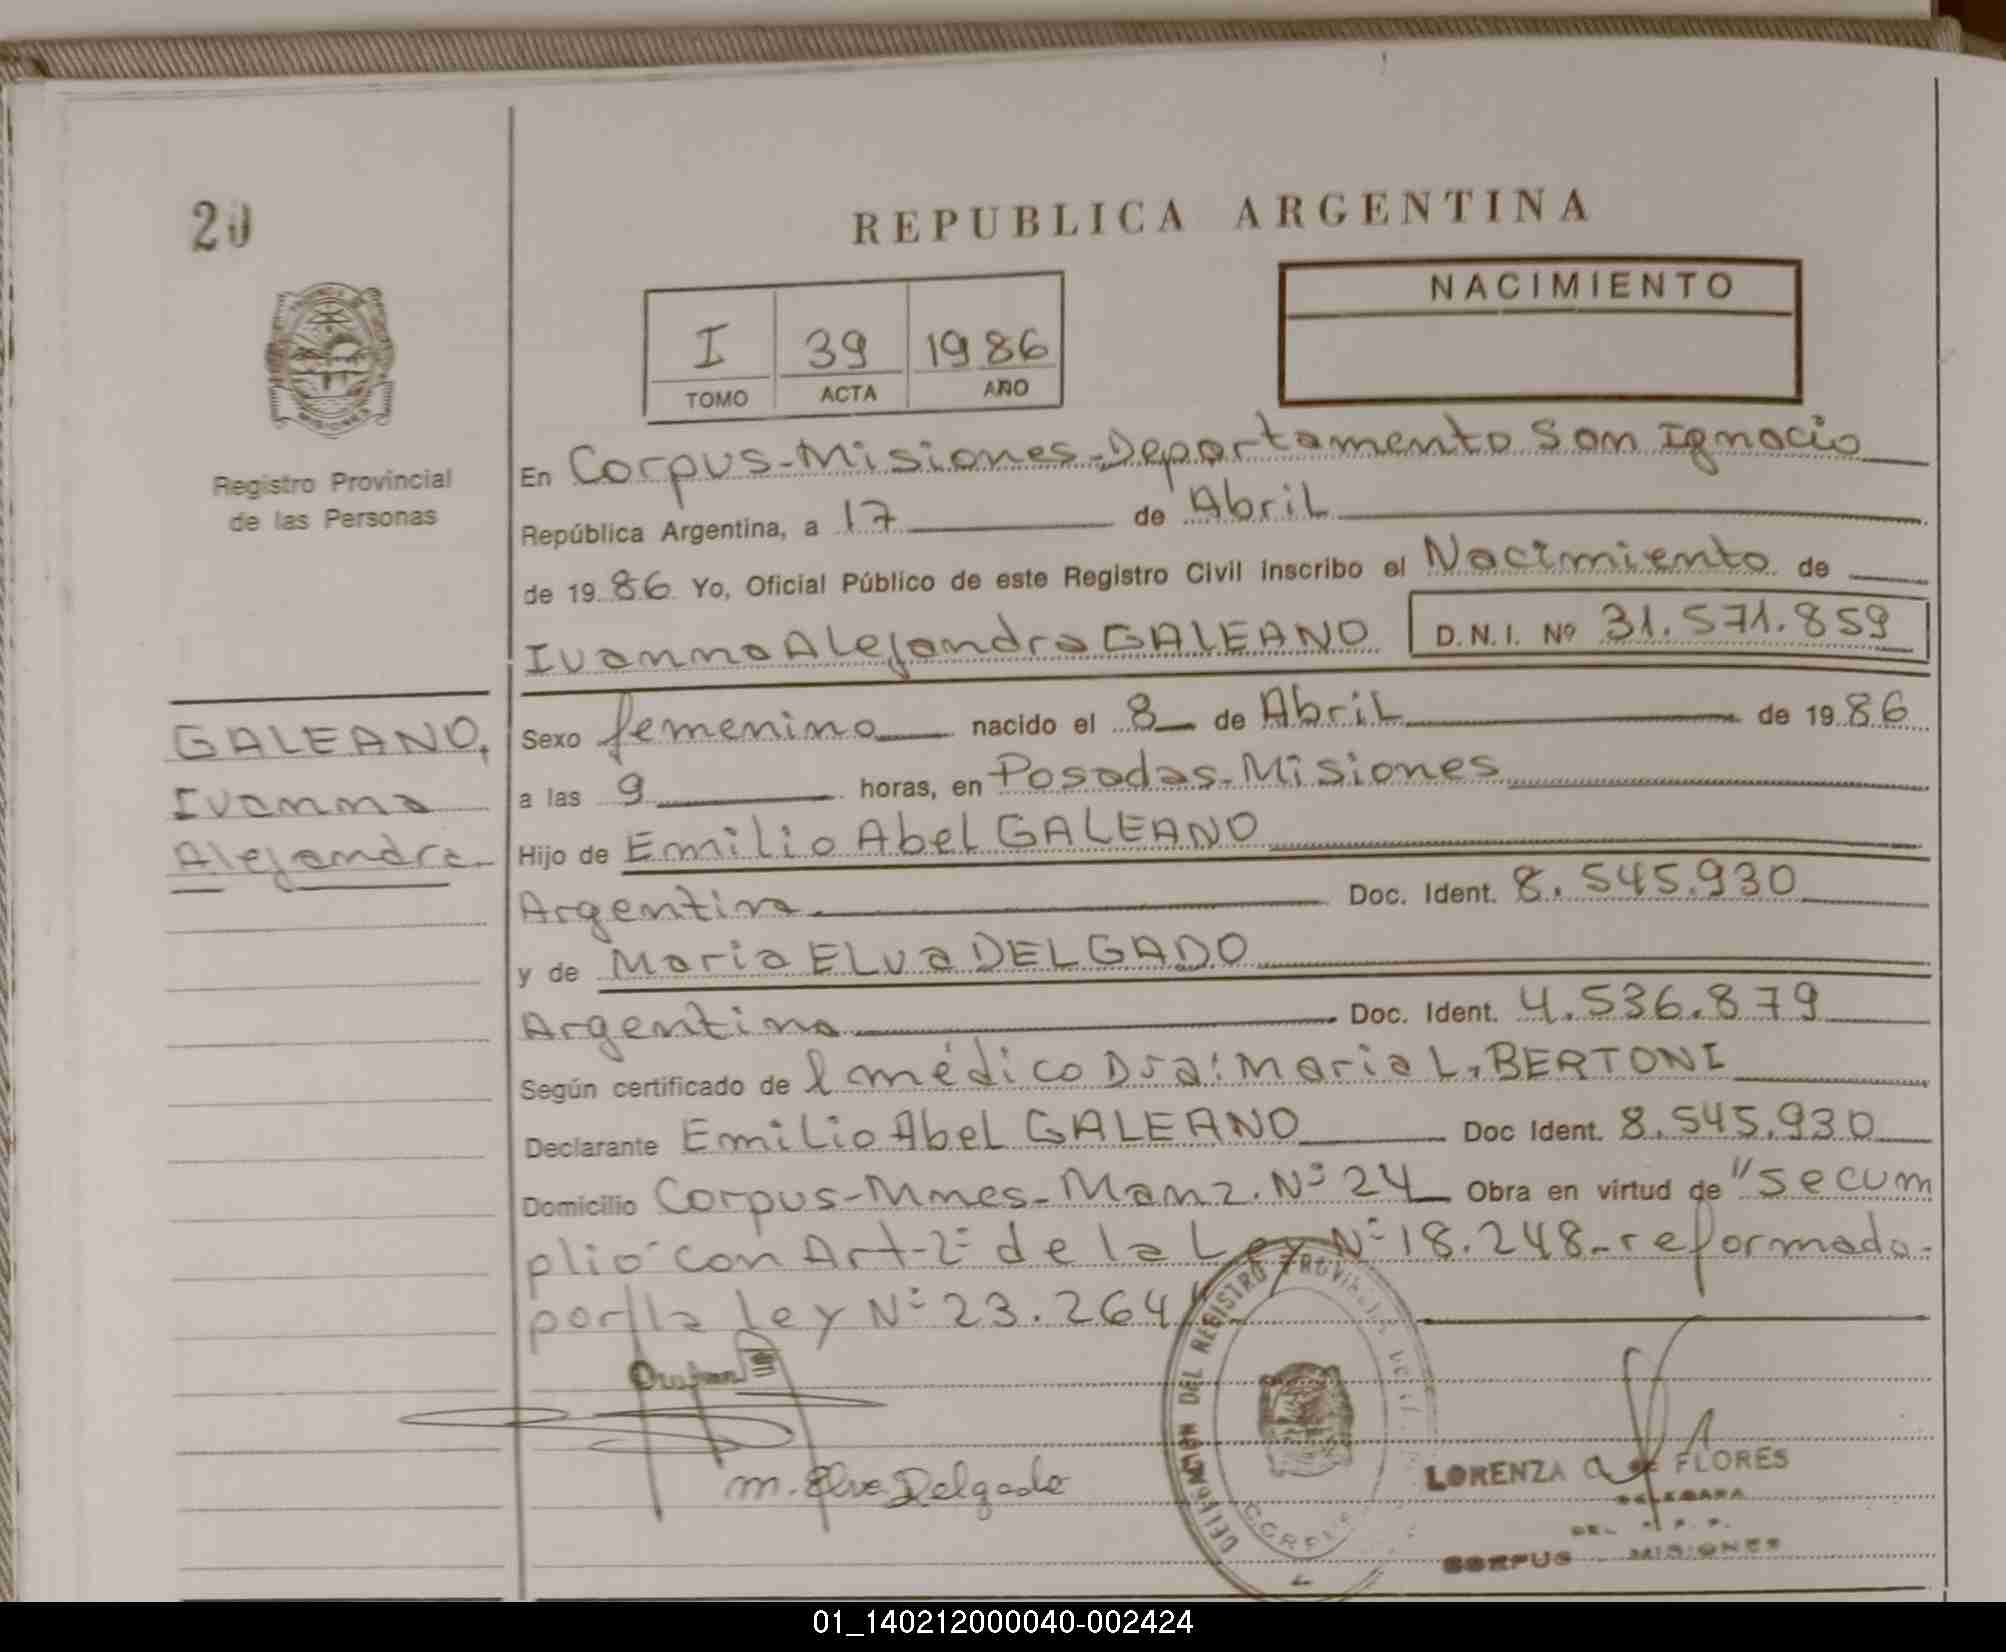 20
REPUBLICA ARGENTINA
NACIMIENTO
I 39 1986
TOMO ACTA AÑO
Registro Provincial
de las Personas
En Corpus-Misiones-Departamento San Ignacio
República Argentina, a 17 de Abril
de 1986 Yo, Oficial Público de este Registro Civil inscribo el Nacimiento de
Ivanna Alejandra GALEANO D.N.I. Nº 31.571.859
GALEANO,
Ivanna
Alejandra.
Sexo femenino nacido el 8 de Abril de 1986
a las 9 horas, en Posadas-Misiones
Hijo de Emilio Abel GALEANO
Argentina Doc. Ident. 8.545.930
y de Maria ELva DELGADO
Argentina Doc. Ident. 4.536.879
Según certificado de l médico Dra: Maria L. BERTONI
Declarante Emilio Abel GALEANO Doc Ident. 8.545.930
Domicilio Corpus-Mnes-Manz. Nº 24 Obra en virtud de "Se cum
plió con Art-2º de la Ley Nº 18.248-reformada-
por la Ley Nº 23.264"
M. Elva Delgado
DELEGACION DEL REGISTRO PROVINCIAL
CORPUS
LORENZA A. DE FLORES
DELEGADA
DEL R. P. P.
CORPUS - MISIONES
01_140212000040-002424